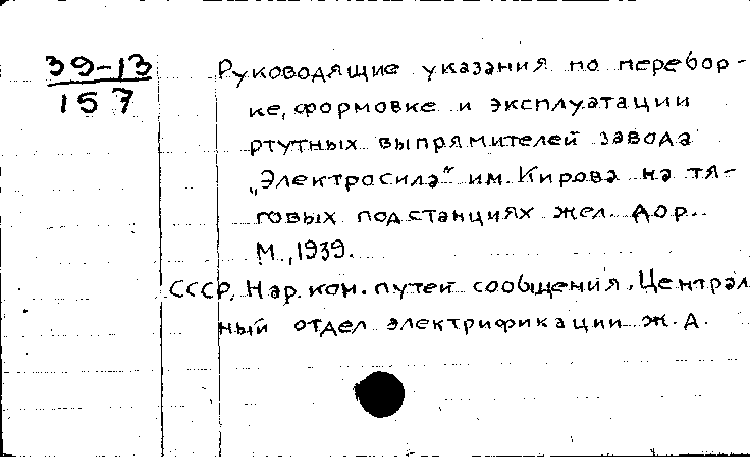 39-13
157
Руководящие указания по перебор-
ке, формовке и эксплуатации
ртутных выпрямителей завода
„Электросила" им. Кирова на тя-
говых подстанциях жел. дор.
М., 1939.
СССР. Нар. ком. путей сообщения. Централ
ный отдел электрификации ж.д.